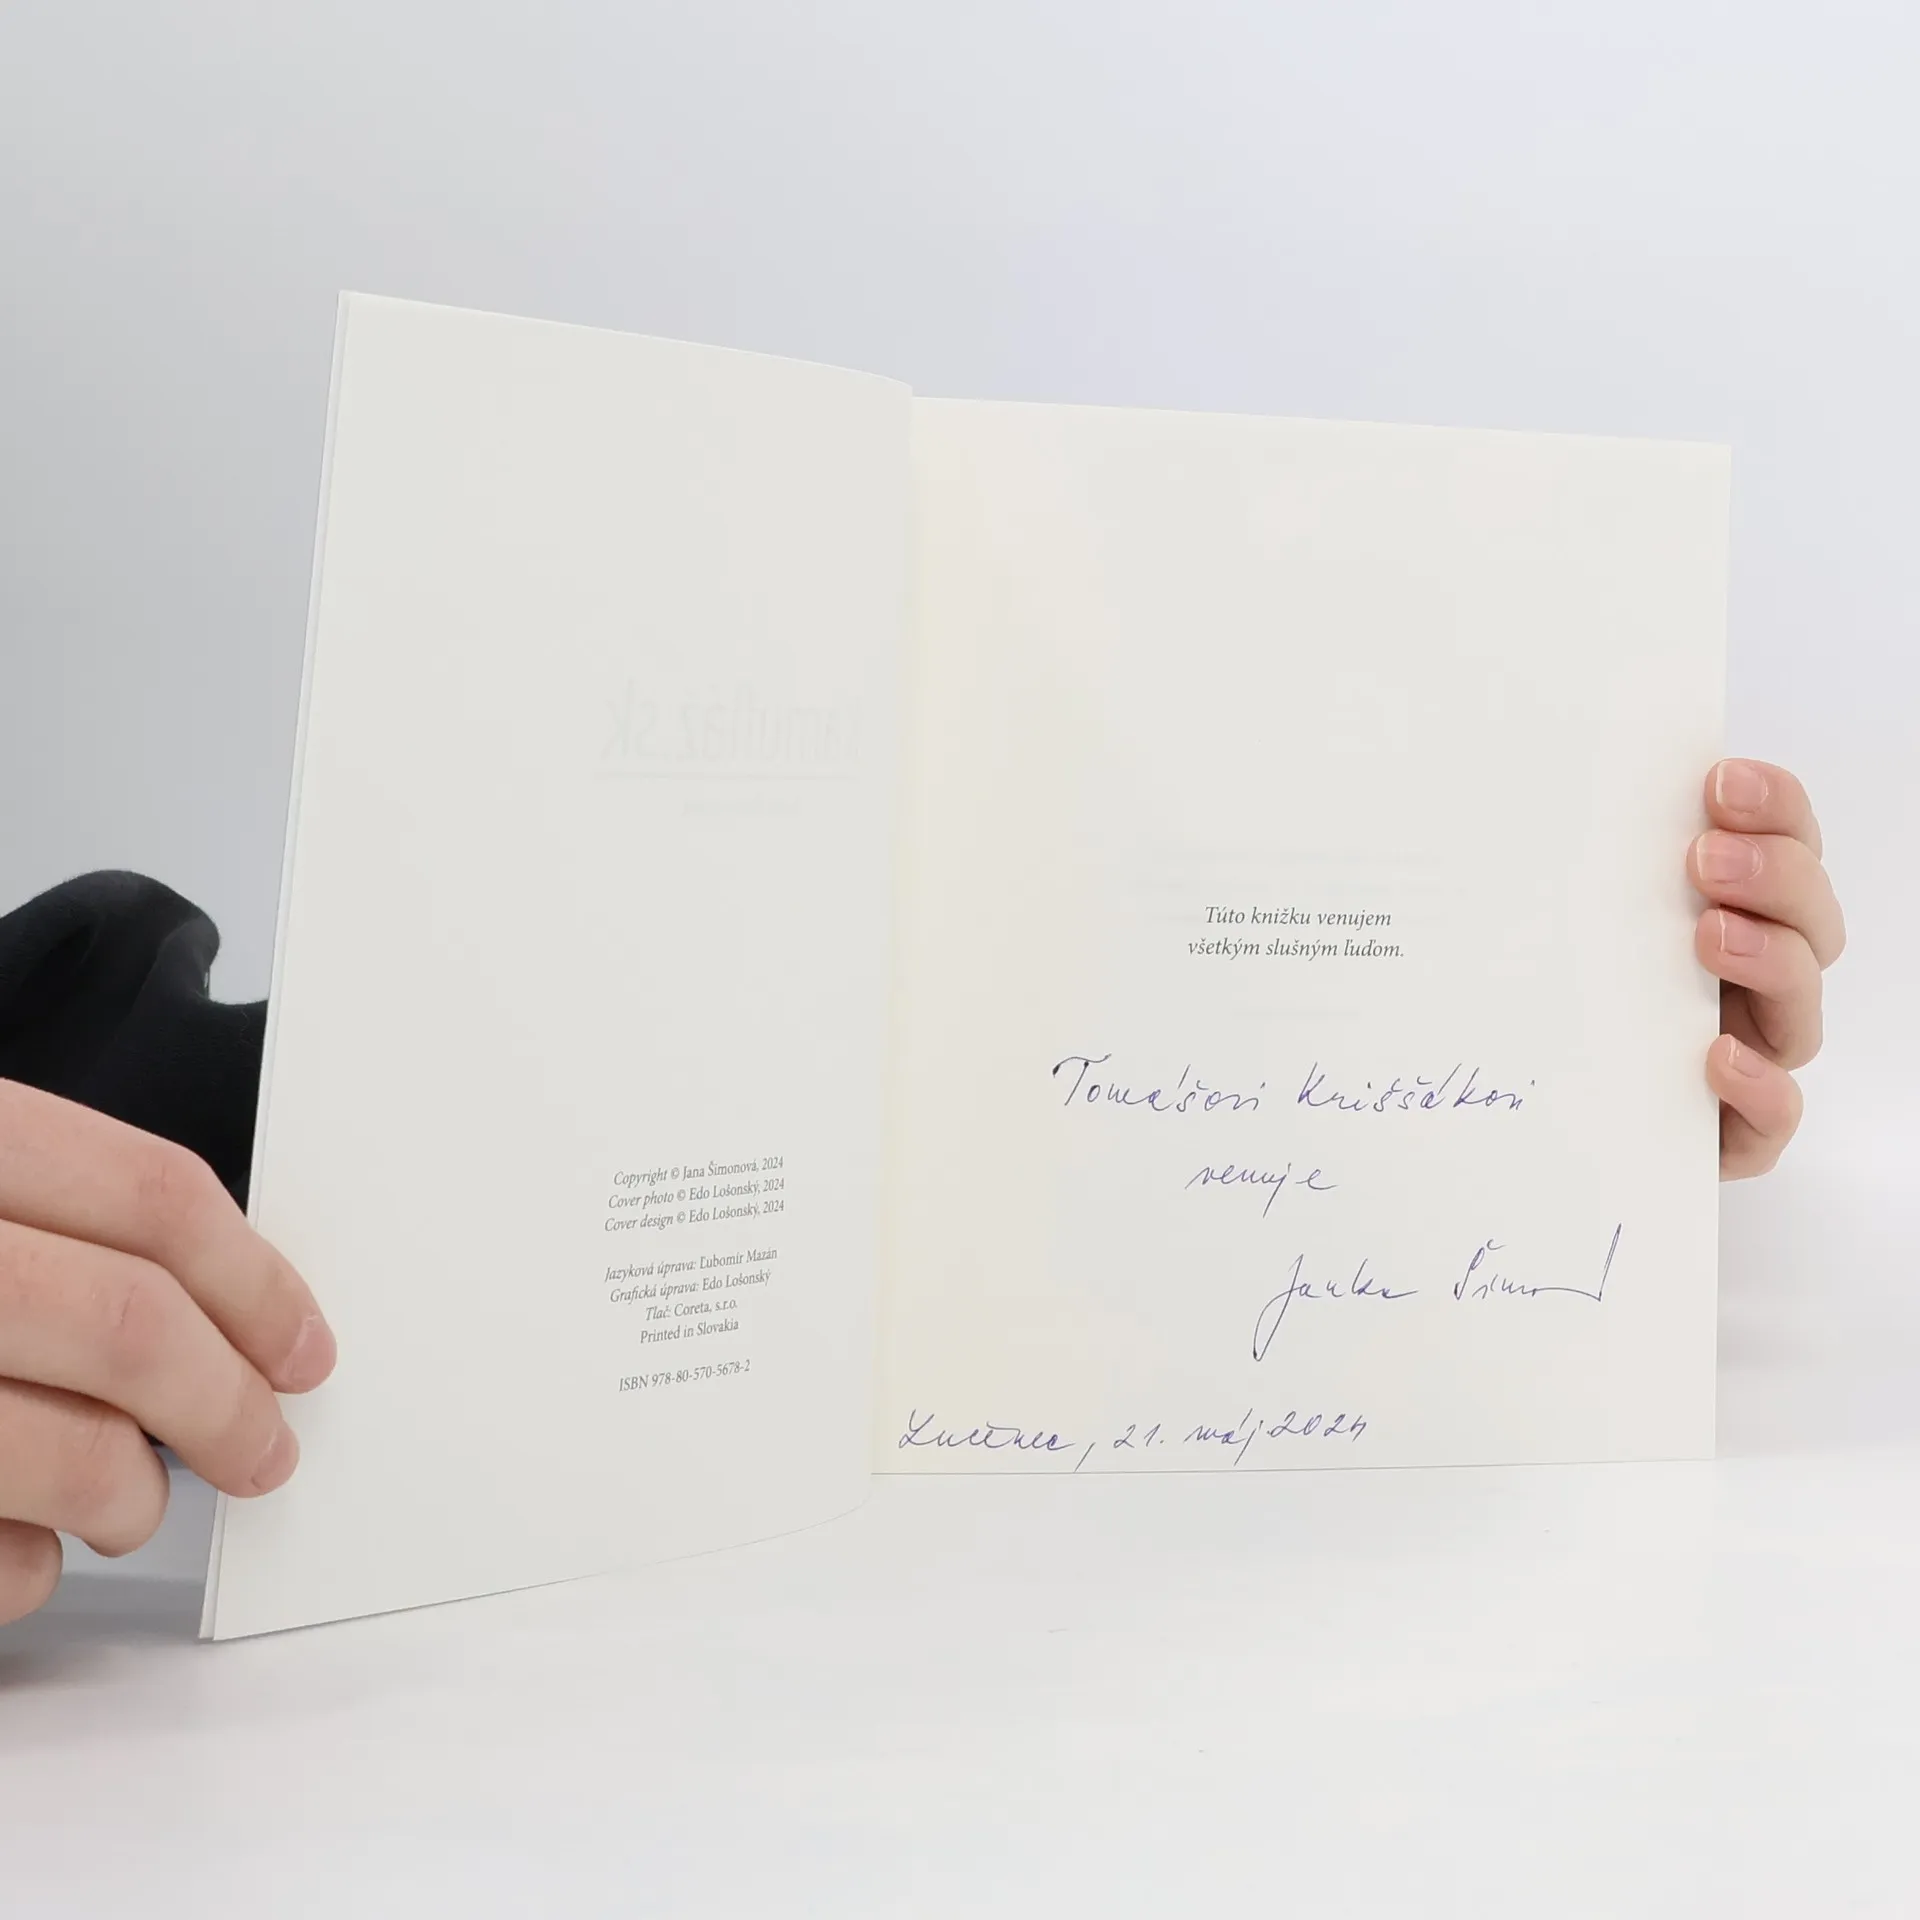 Copyright © Jana Šimonová, 2024
Cover photo © Edo Lošonský, 2024
Cover design © Edo Lošonský, 2024
Jazyková úprava: Ľubomír Mazán
Grafická úprava: Edo Lošonský
Tlač: Coreta, s.r.o.
Printed in Slovakia
ISBN 978-80-570-5678-2
Túto knižku venujem
všetkým slušným ľuďom.
Tomášovi Kriššákovi
venuje
Janka
Lučenec, 21. máj 2024